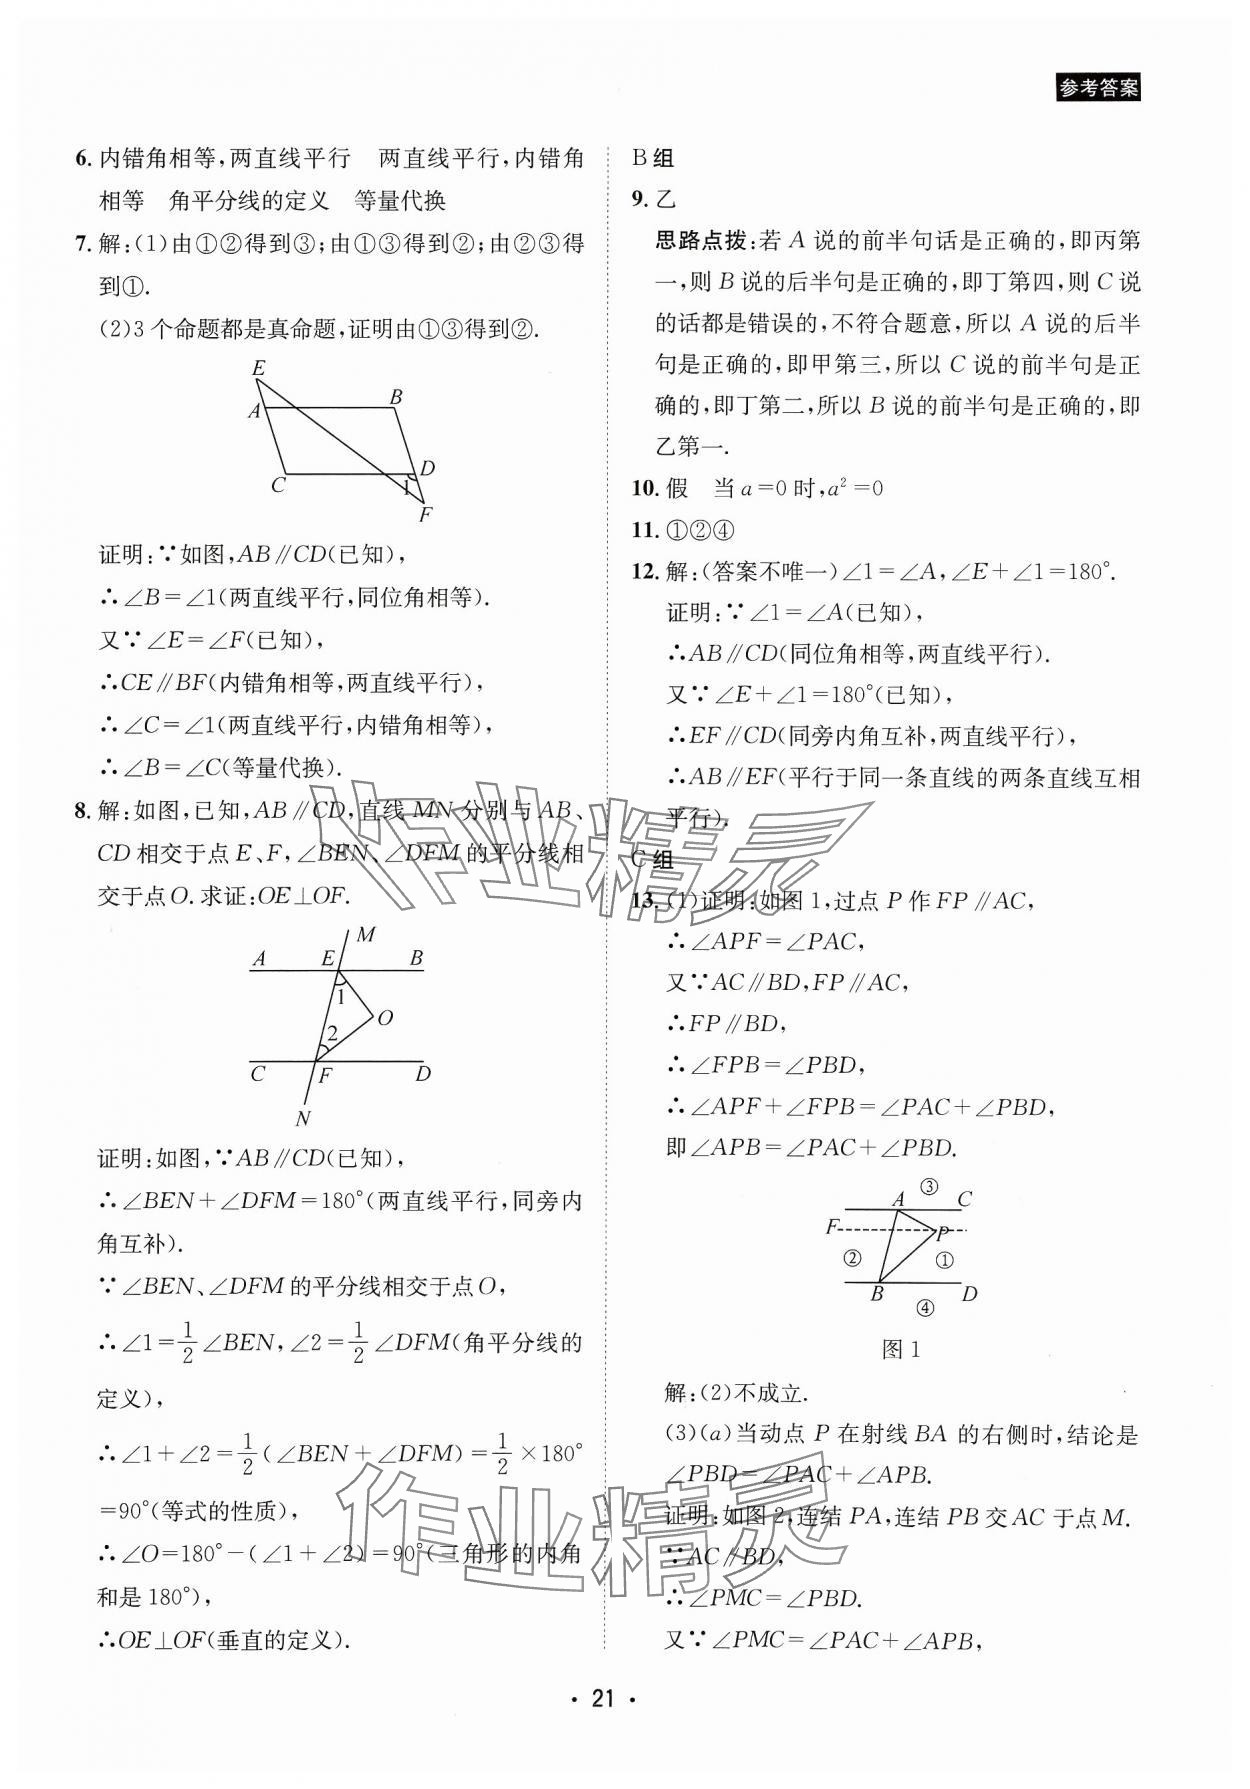 参考答案
6. 内错角相等,两直线平行　两直线平行,内错角
相等　角平分线的定义　等量代换
7. 解:(1)由①②得到③;由①③得到②;由②③得
到①.
(2)3 个命题都是真命题,证明由①③得到②.
E
A
B
C
D
1
F
证明:∵如图,AB∥CD(已知),
∴∠B=∠1(两直线平行,同位角相等).
又∵∠E=∠F(已知),
∴CE∥BF(内错角相等,两直线平行),
∴∠C=∠1(两直线平行,内错角相等),
∴∠B=∠C(等量代换).
8. 解:如图,已知,AB∥CD,直线 MN 分别与 AB、
CD 相交于点 E、F,∠BEN、∠DFM 的平分线相
交于点 O. 求证:OE⊥OF.
M
A E B
1
O
2
C F D
N
证明:如图,∵AB∥CD(已知),
∴∠BEN+∠DFM=180°(两直线平行,同旁内
角互补).
∵∠BEN、∠DFM 的平分线相交于点 O,
∴∠1=1/2∠BEN,∠2=1/2∠DFM(角平分线的
定义),
∴∠1+∠2=1/2(∠BEN+∠DFM)=1/2×180°
=90°(等式的性质),
∴∠O=180°-(∠1+∠2)=90°(三角形的内角
和是 180°),
∴OE⊥OF(垂直的定义).
B 组
9. 乙
思路点拨:若 A 说的前半句话是正确的,即丙第
一,则 B 说的后半句是正确的,即丁第四,则 C 说
的话都是错误的,不符合题意,所以 A 说的后半
句是正确的,即甲第三,所以 C 说的前半句是正
确的,即丁第二,所以 B 说的前半句是正确的,即
乙第一.
10. 假　当 a=0 时,a²=0
11. ①②④
12. 解:(答案不唯一)∠1=∠A,∠E+∠1=180°.
证明:∵∠1=∠A(已知),
∴AB∥CD(同位角相等,两直线平行).
又∵∠E+∠1=180°(已知),
∴EF∥CD(同旁内角互补,两直线平行),
∴AB∥EF(平行于同一条直线的两条直线互相
平行).
C 组
13. (1)证明:如图 1,过点 P 作 FP∥AC,
∴∠APF=∠PAC,
又∵AC∥BD,FP∥AC,
∴FP∥BD,
∴∠FPB=∠PBD,
∴∠APF+∠FPB=∠PAC+∠PBD,
即∠APB=∠PAC+∠PBD.
③
A C
F P
② ①
B D
④
图 1
解:(2)不成立.
(3)(a)当动点 P 在射线 BA 的右侧时,结论是
∠PBD=∠PAC+∠APB.
证明:如图 2,连结 PA,连结 PB 交 AC 于点 M.
∵AC∥BD,
∴∠PMC=∠PBD.
又∵∠PMC=∠PAC+∠APB,
作业精灵
作业精灵
· 21 ·